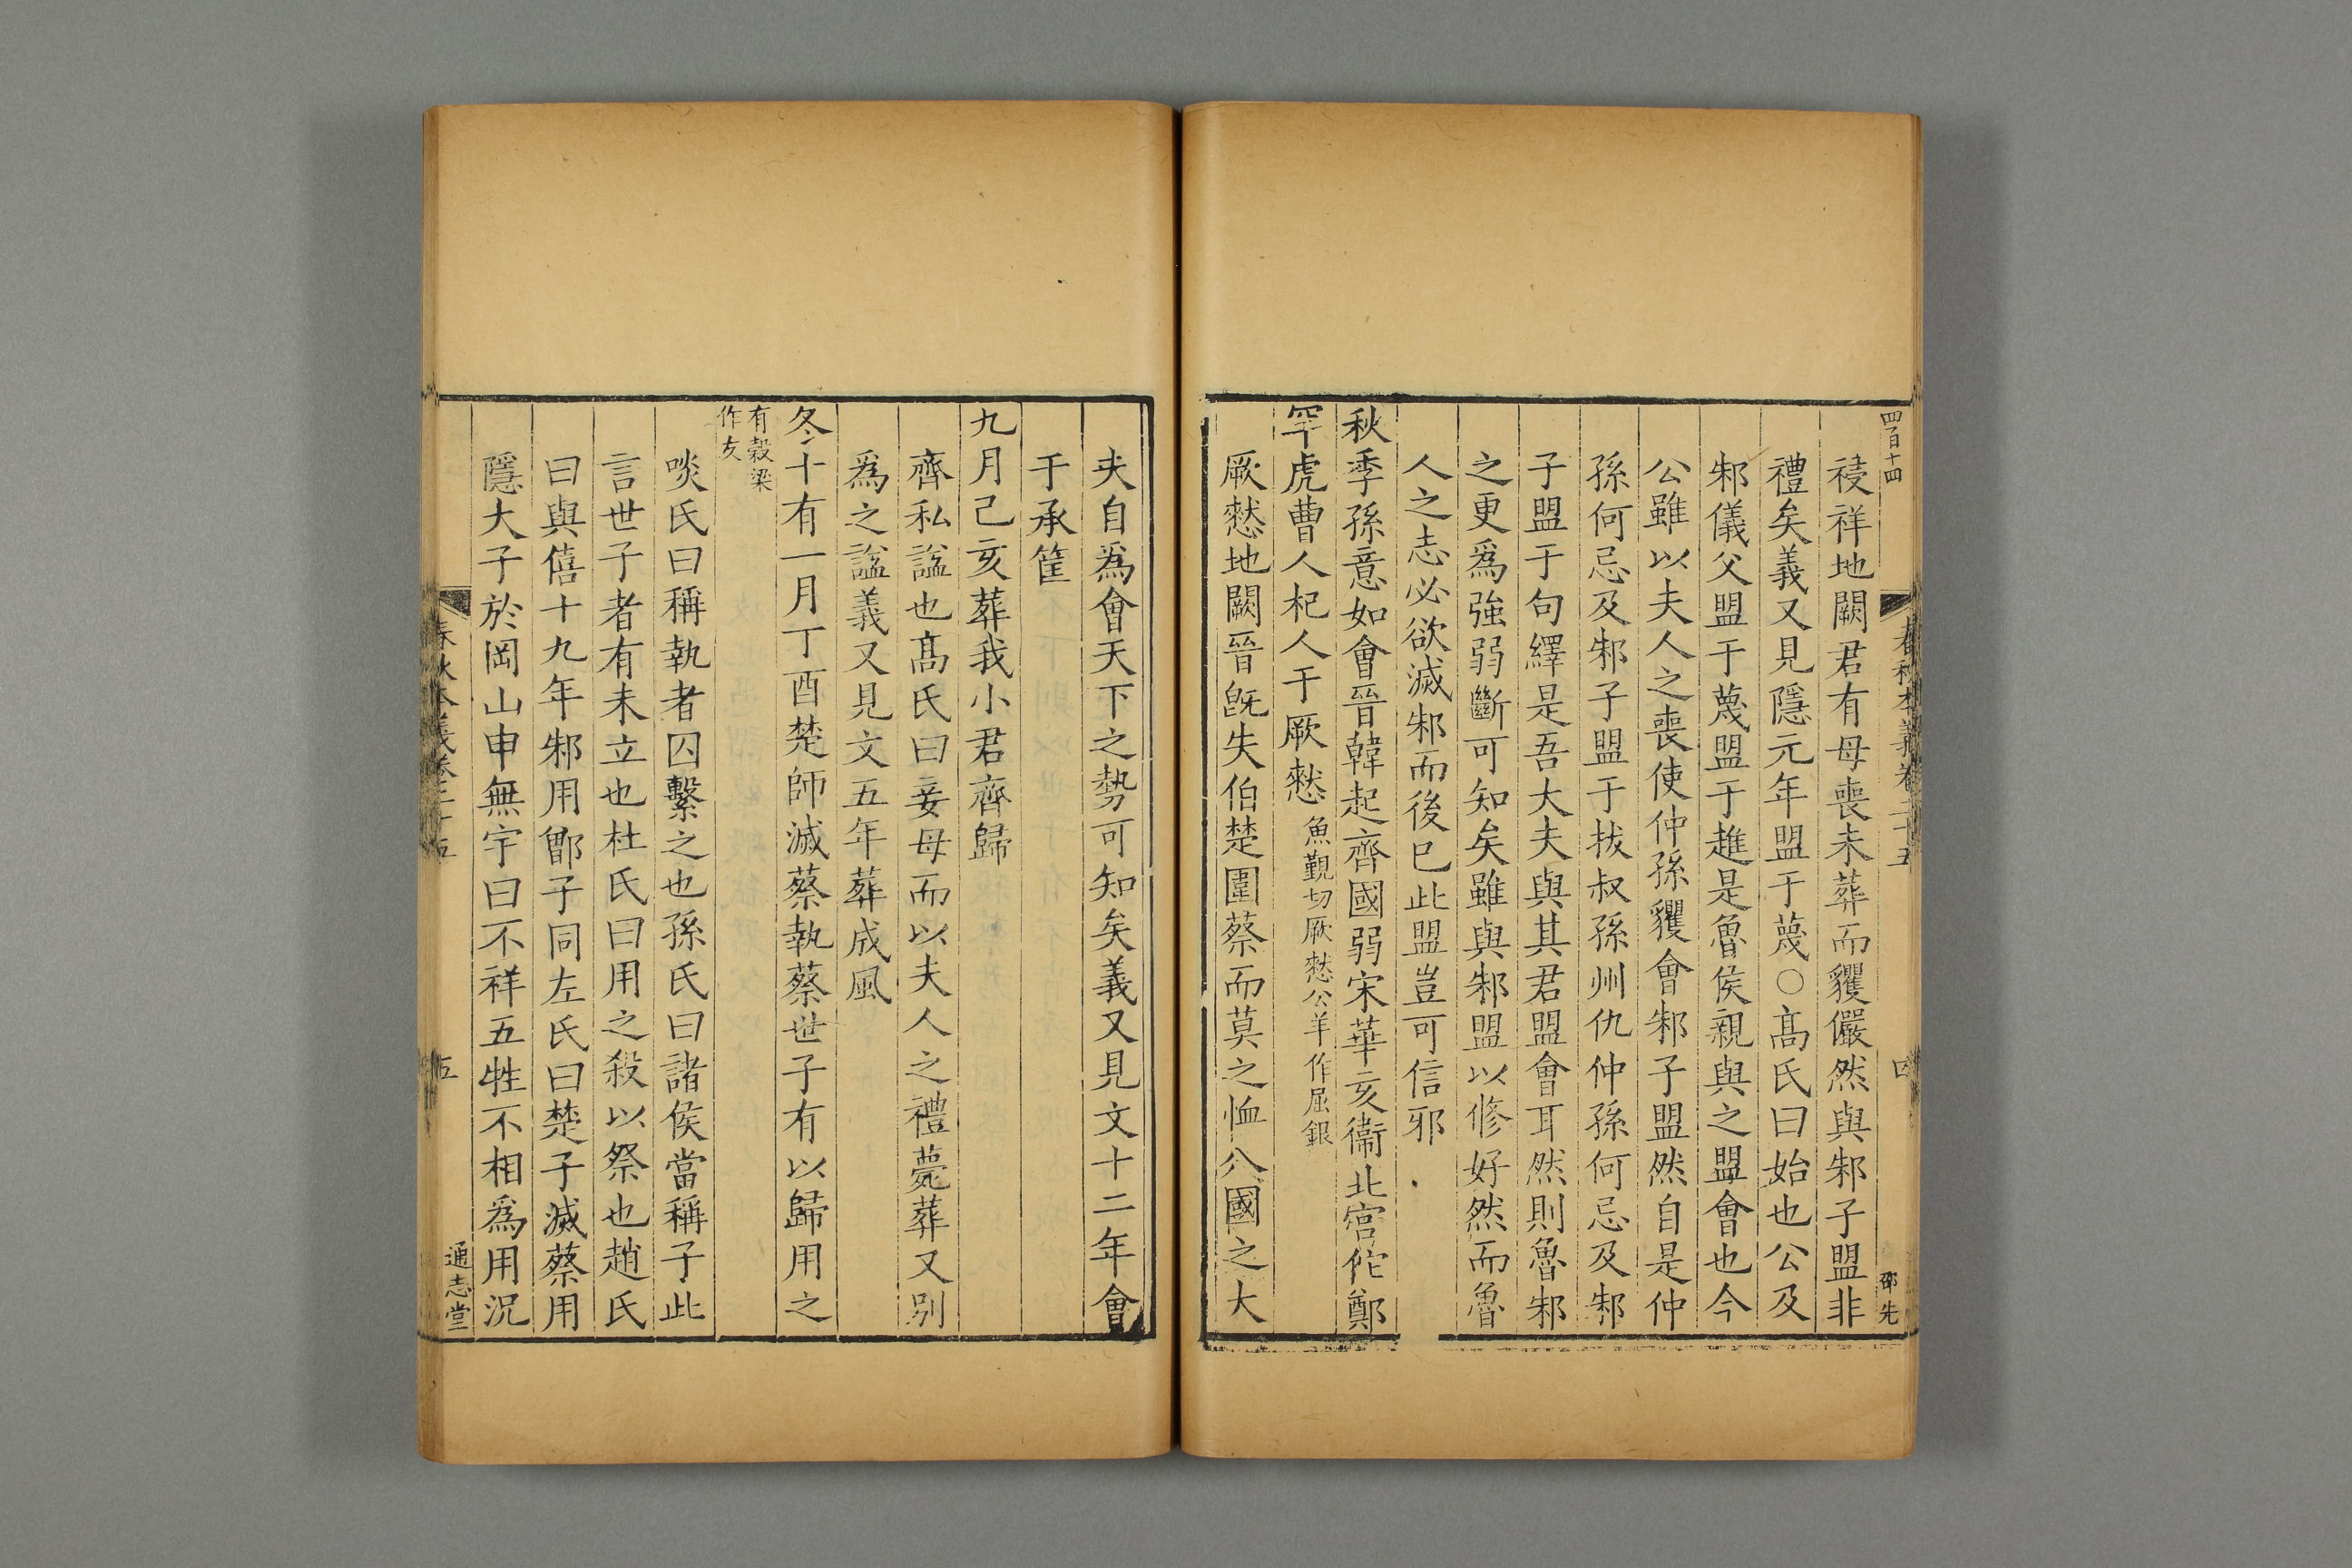 四百十四
春秋本義卷二十五
四
邵先
祲祥地闕君有母喪未葬而貜儼然與邾子盟非
禮矣義又見隱元年盟于蔑○髙氏曰始也公及
邾儀父盟于蔑盟于趡是魯侯親與之盟會也今
公雖以夫人之喪使仲孫貜會邾子盟然自是仲
孫何忌及邾子盟于拔叔孫州仇仲孫何忌及邾
子盟于句繹是吾大夫與其君盟會耳然則魯邾
之更爲強弱斷可知矣雖與邾盟以修好然而魯
人之志必欲滅邾而後巳此盟豈可信邪
秋季孫意如會晉韓起齊國弱宋華亥衞北宫佗鄭
罕虎曹人杞人于厥憖魚覲切厥憖公羊作屈銀
厥憖地闕晉旣失伯楚圍蔡而莫之恤八國之大
夫自爲會天下之勢可知矣義又見文十二年會
于承筐
九月己亥葬我小君齊歸
齊私謚也髙氏曰妾母而以夫人之禮薨葬又别
爲之謚義又見文五年葬成風
冬十有一月丁酉楚師滅蔡執蔡世子有以歸用之
有穀梁
作友
啖氏曰稱執者囚繫之也孫氏曰諸侯當稱子此
言世子者有未立也杜氏曰用之殺以祭也趙氏
曰與僖十九年邾用鄫子同左氏曰楚子滅蔡用
隱大子於岡山申無宇曰不祥五牲不相爲用況
春秋本義卷二十五
五
通志堂